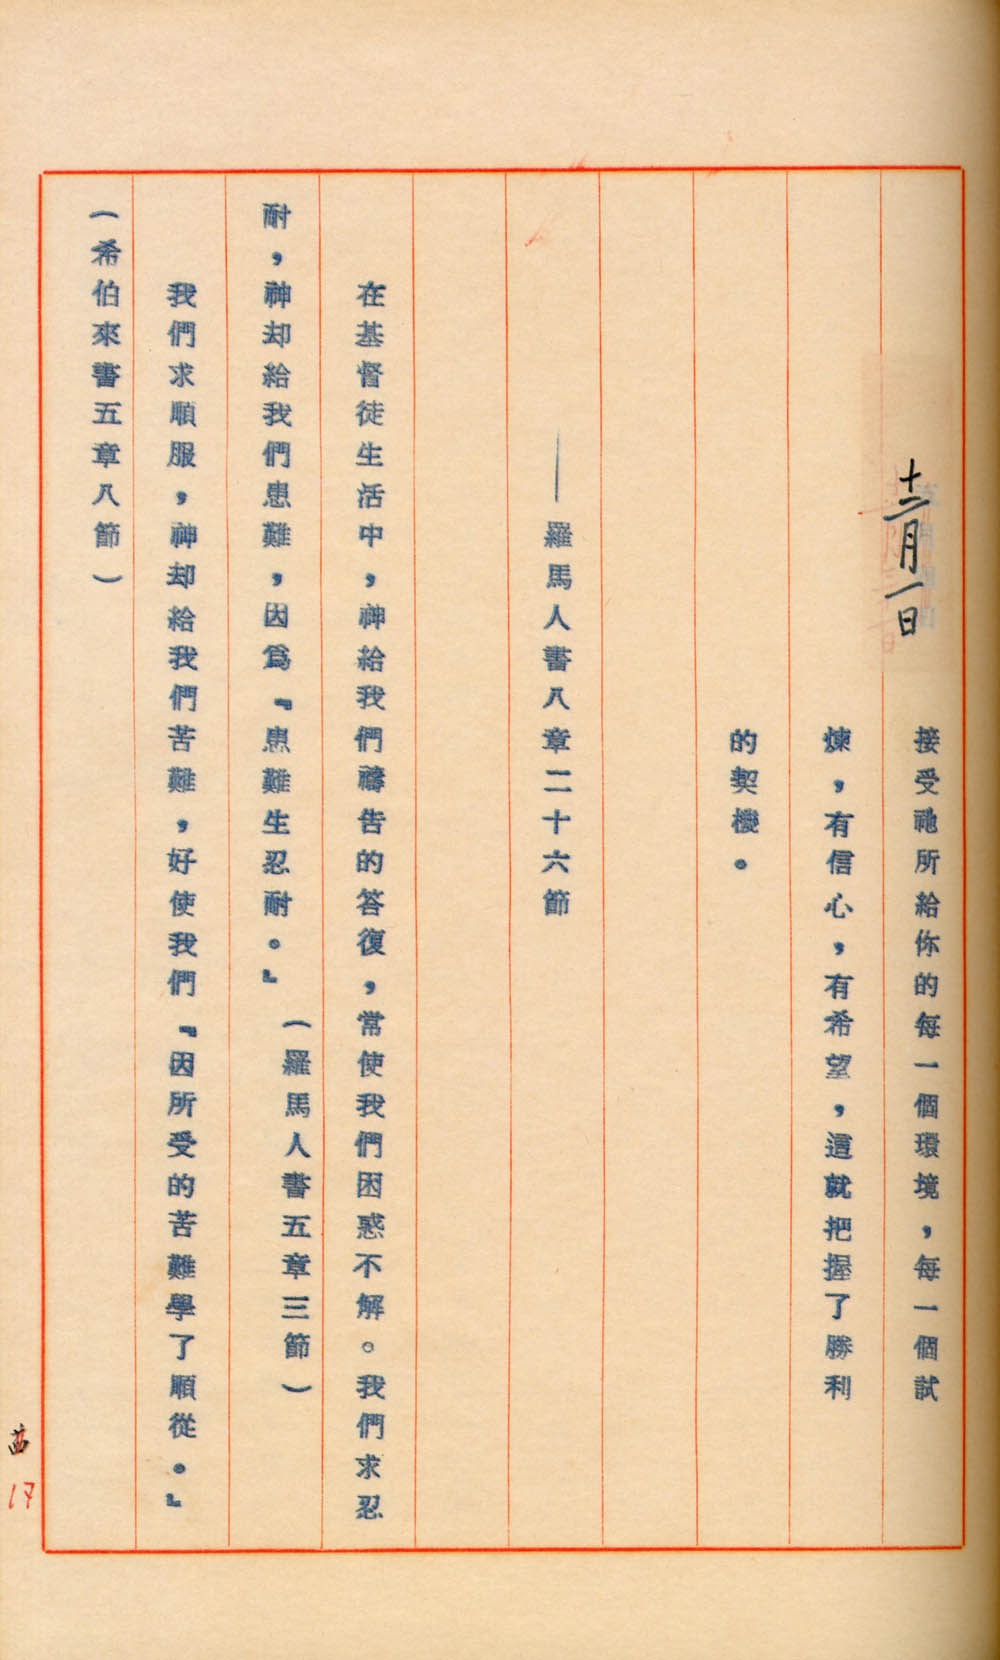 十二月一日
接受祂所給你的每一個環境，每一個試
煉，有信心，有希望，這就把握了勝利
的契機。
——羅馬人書八章二十六節
在基督徒生活中，神給我們禱告的答復，常使我們困惑不解。我們求忍
耐，神却給我們患難，因爲『患難生忍耐。』（羅馬人書五章三節）
我們求順服，神却給我們苦難，好使我們『因所受的苦難學了順從。』
（希伯來書五章八節）